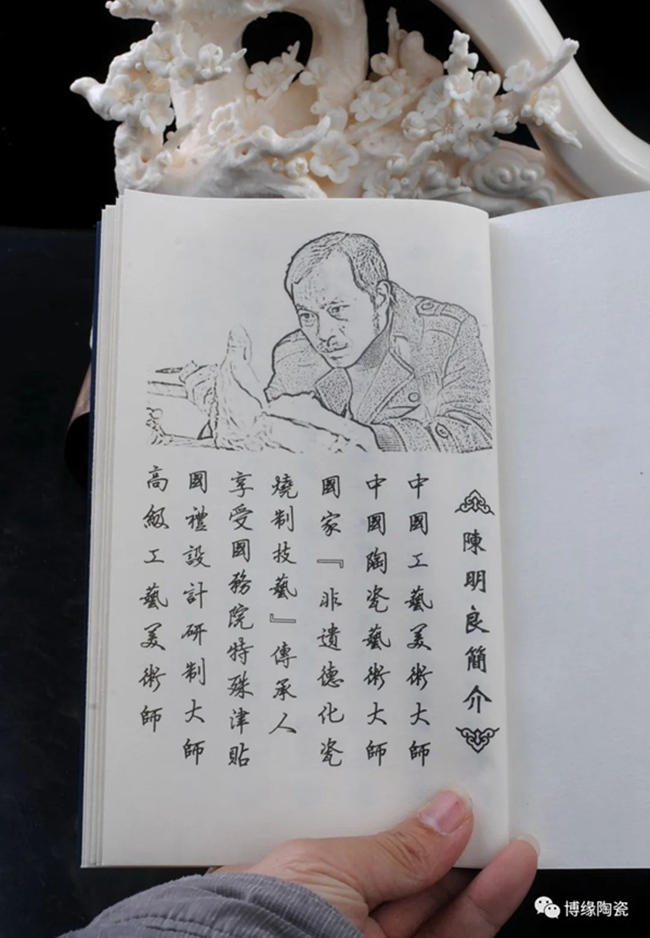 陳明良簡介
中國工藝美術大師
中國陶瓷藝術大師
國家『非遺德化瓷
燒制技藝』傳承人
享受國務院特殊津貼
國禮設計研制大師
高級工藝美術師
博缘陶瓷